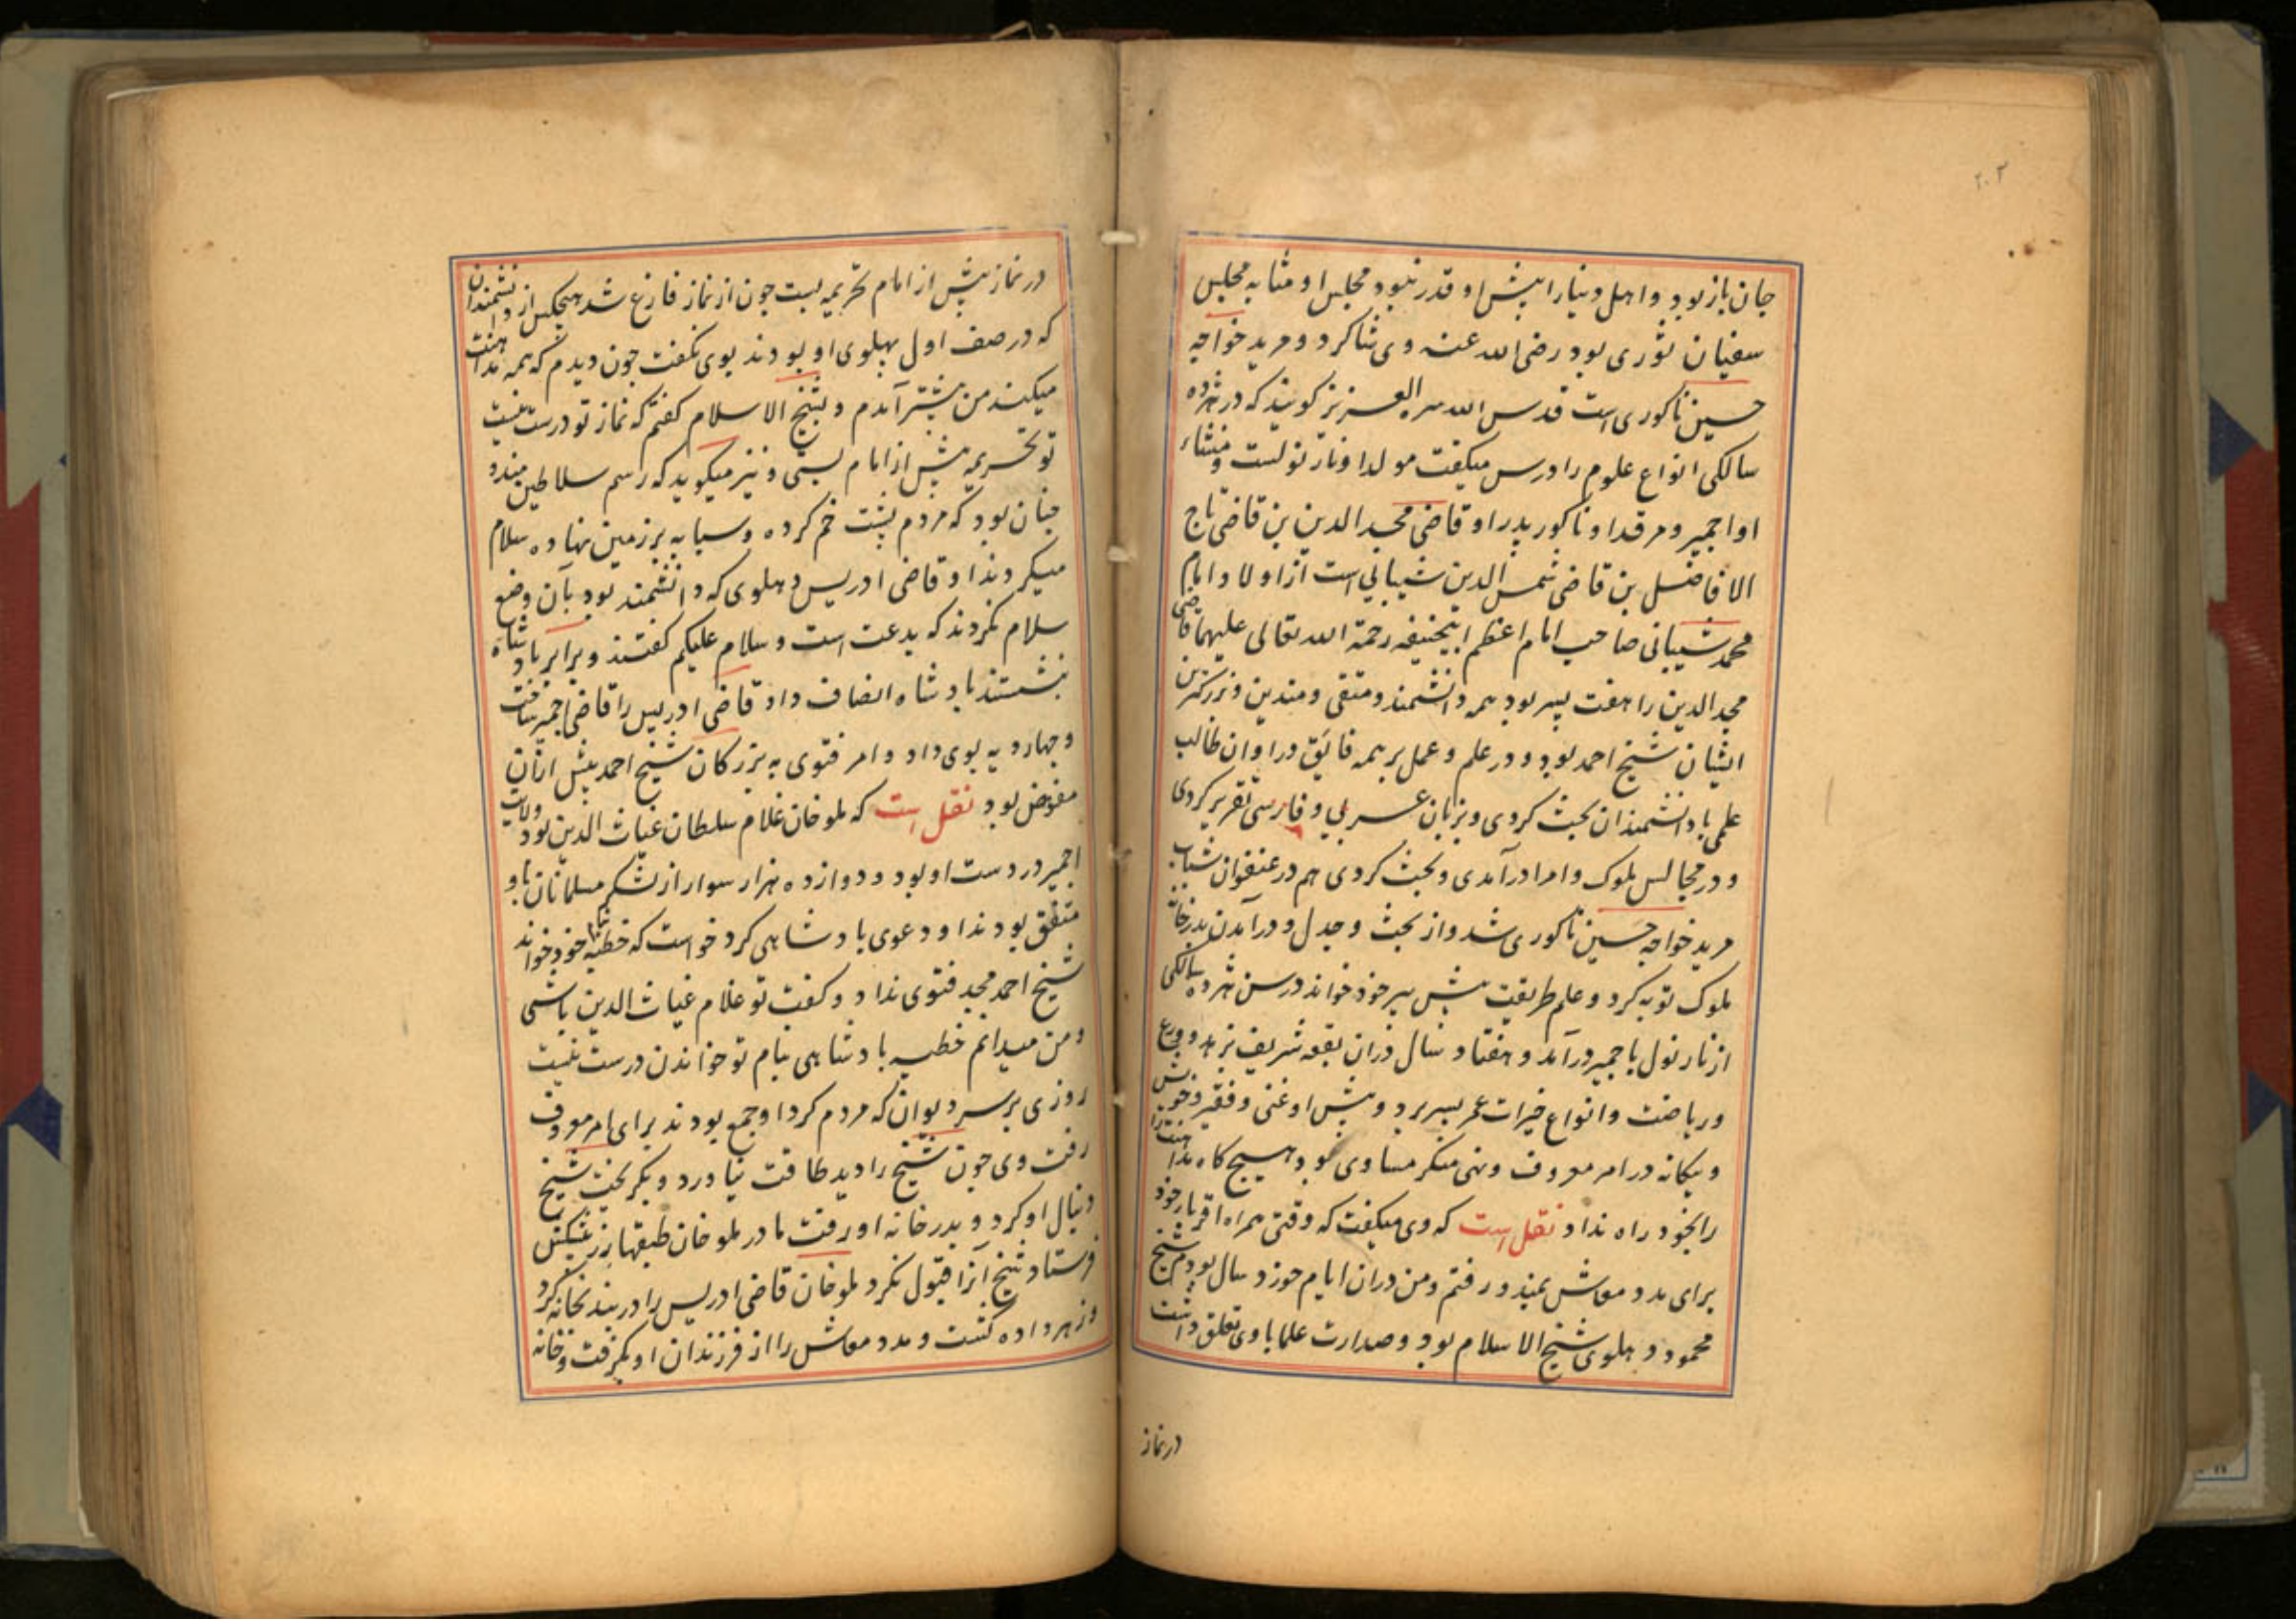 ۲۰۳
جان باز بود و اهل دنیا را پیش او قدر نبود مجلس او مشابه مجلس
سفیان ثوری بود رضی الله عنه وی شاکرد و مرید خواجه
حسین ناکوری است قدس الله سره العزیز کویند که در هژده
سالکی انواع علوم را درس میکفت مولد او نارنولست و منشاء
او اجمیر و مرقد او ناکور پدر او قاضی مجد الدین بن قاضی تاج
الافاضل بن قاضی شمس الدین شیبانی است از اولاد امام
محمد شیبانی صاحب امام اعظم ابیحنیفه رحمة الله تعالی علیهما قاضی
مجد الدین را هفت پسر بود همه دانشمند و متقی و متدین و بزرکترین
ایشان شیخ احمد بود و در علم و عمل بر همه فایق در اوان طالب
علمی با دانشمندان بحث کردی و بزبان عربی و فارسی تقریر کردی
و در مجالس ملوک و امرا درآمدی و بحث کردی هم در عنفوان شباب
مرید خواجه حسین ناکوری شد و از بحث و جدل و درآمدن بدرخانه
ملوک توبه کرد و علم طریقت پیش پیر خود خواند در سن هژده سالکی
از نارنول باجمیر درآمد و هفتاد سال دران بقعه شریف بزهد و ورع
و ریاضت و انواع خیرات عمر بسر برد و پیش او غنی و فقیر و خویش
و بیکانه در امر معروف و نهی منکر مساوی بود هیچ کاه مداهنت را
بخود راه نداد نقل است که وی میکفت که وقتی همراه اقربا خود
برای مدد معاش بمندو رفتم و من دران ایام خورد سال بودم شیخ
محمود دهلوی شیخ الاسلام بود و صدارت علما با وی تعلق داشت
در نماز
در نماز پیش از امام تحریمه بست چون از نماز فارغ شد هیچکس از دانشمندان
که در صف اول پهلوی او بودند بوی نکفت چون دیدم که همه مداهنت
میکنند من پیشتر آمدم و بشیخ الاسلام کفتم که نماز تو درست نیست
تو تحریمه پیش از امام بستی و نیز میکوید که رسم سلاطین مندو
چنان بود که مردم پشت خم کرده و سبابه بر زمین نهاده سلام
میکردند او و قاضی ادریس دهلوی که دانشمند بود بآن وضع
سلام نکردند که بدعت است و سلام علیکم کفتند و برابر بادشاه
نشستند بادشاه انصاف داد قاضی ادریس را قاضی اجمیر ساخت
و چهار دیه بوی داد و امر فتوی به بزرکان شیخ احمد پیش ازان
مفوض بود نقل است که ملوخان غلام سلطان غیاث الدین بود ولایت
اجمیر در دست او بود و دوازده هزار سوار از لشکر مسلمانان با او
متفق بودند او دعوی بادشاهی کرد خواست که خطبه بنام خود خواند
شیخ احمد مجد فتوی نداد و کفت تو غلام غیاث الدین باشی
و من میدانم خطبه بادشاهی بنام تو خواندن درست نیست
روزی بر سر دیوان که مردم کرد او جمع بودند برای امر معروف
رفت وی چون شیخ را دید طاقت نیاورد و بکریخت شیخ
دنبال او کرد و بدر خانه او رفت مادر ملوخان طبقها زر پیشکش
فرستاد شیخ آنرا قبول نکرد ملوخان قاضی ادریس را در بندیخانه کرد
و زهر داده کشت و مدد معاش را از فرزندان او بکرفت و خانه